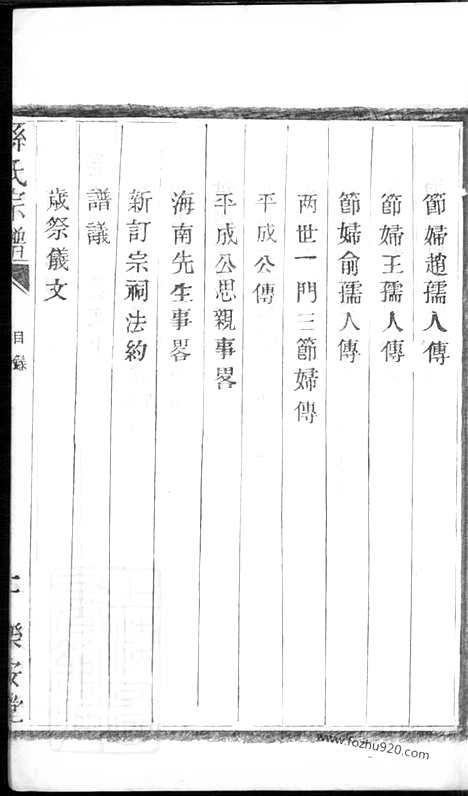 節婦趙孺人傳
節婦王孺人傳
節婦俞孺人傳
两世一門三節婦傳
平成公傳
平成公思親事畧
海南先生事畧
新訂宗祠法約
譜議
歲祭儀文
孫氏宗譜
目錄
樂安堂
www.fozhu920.com